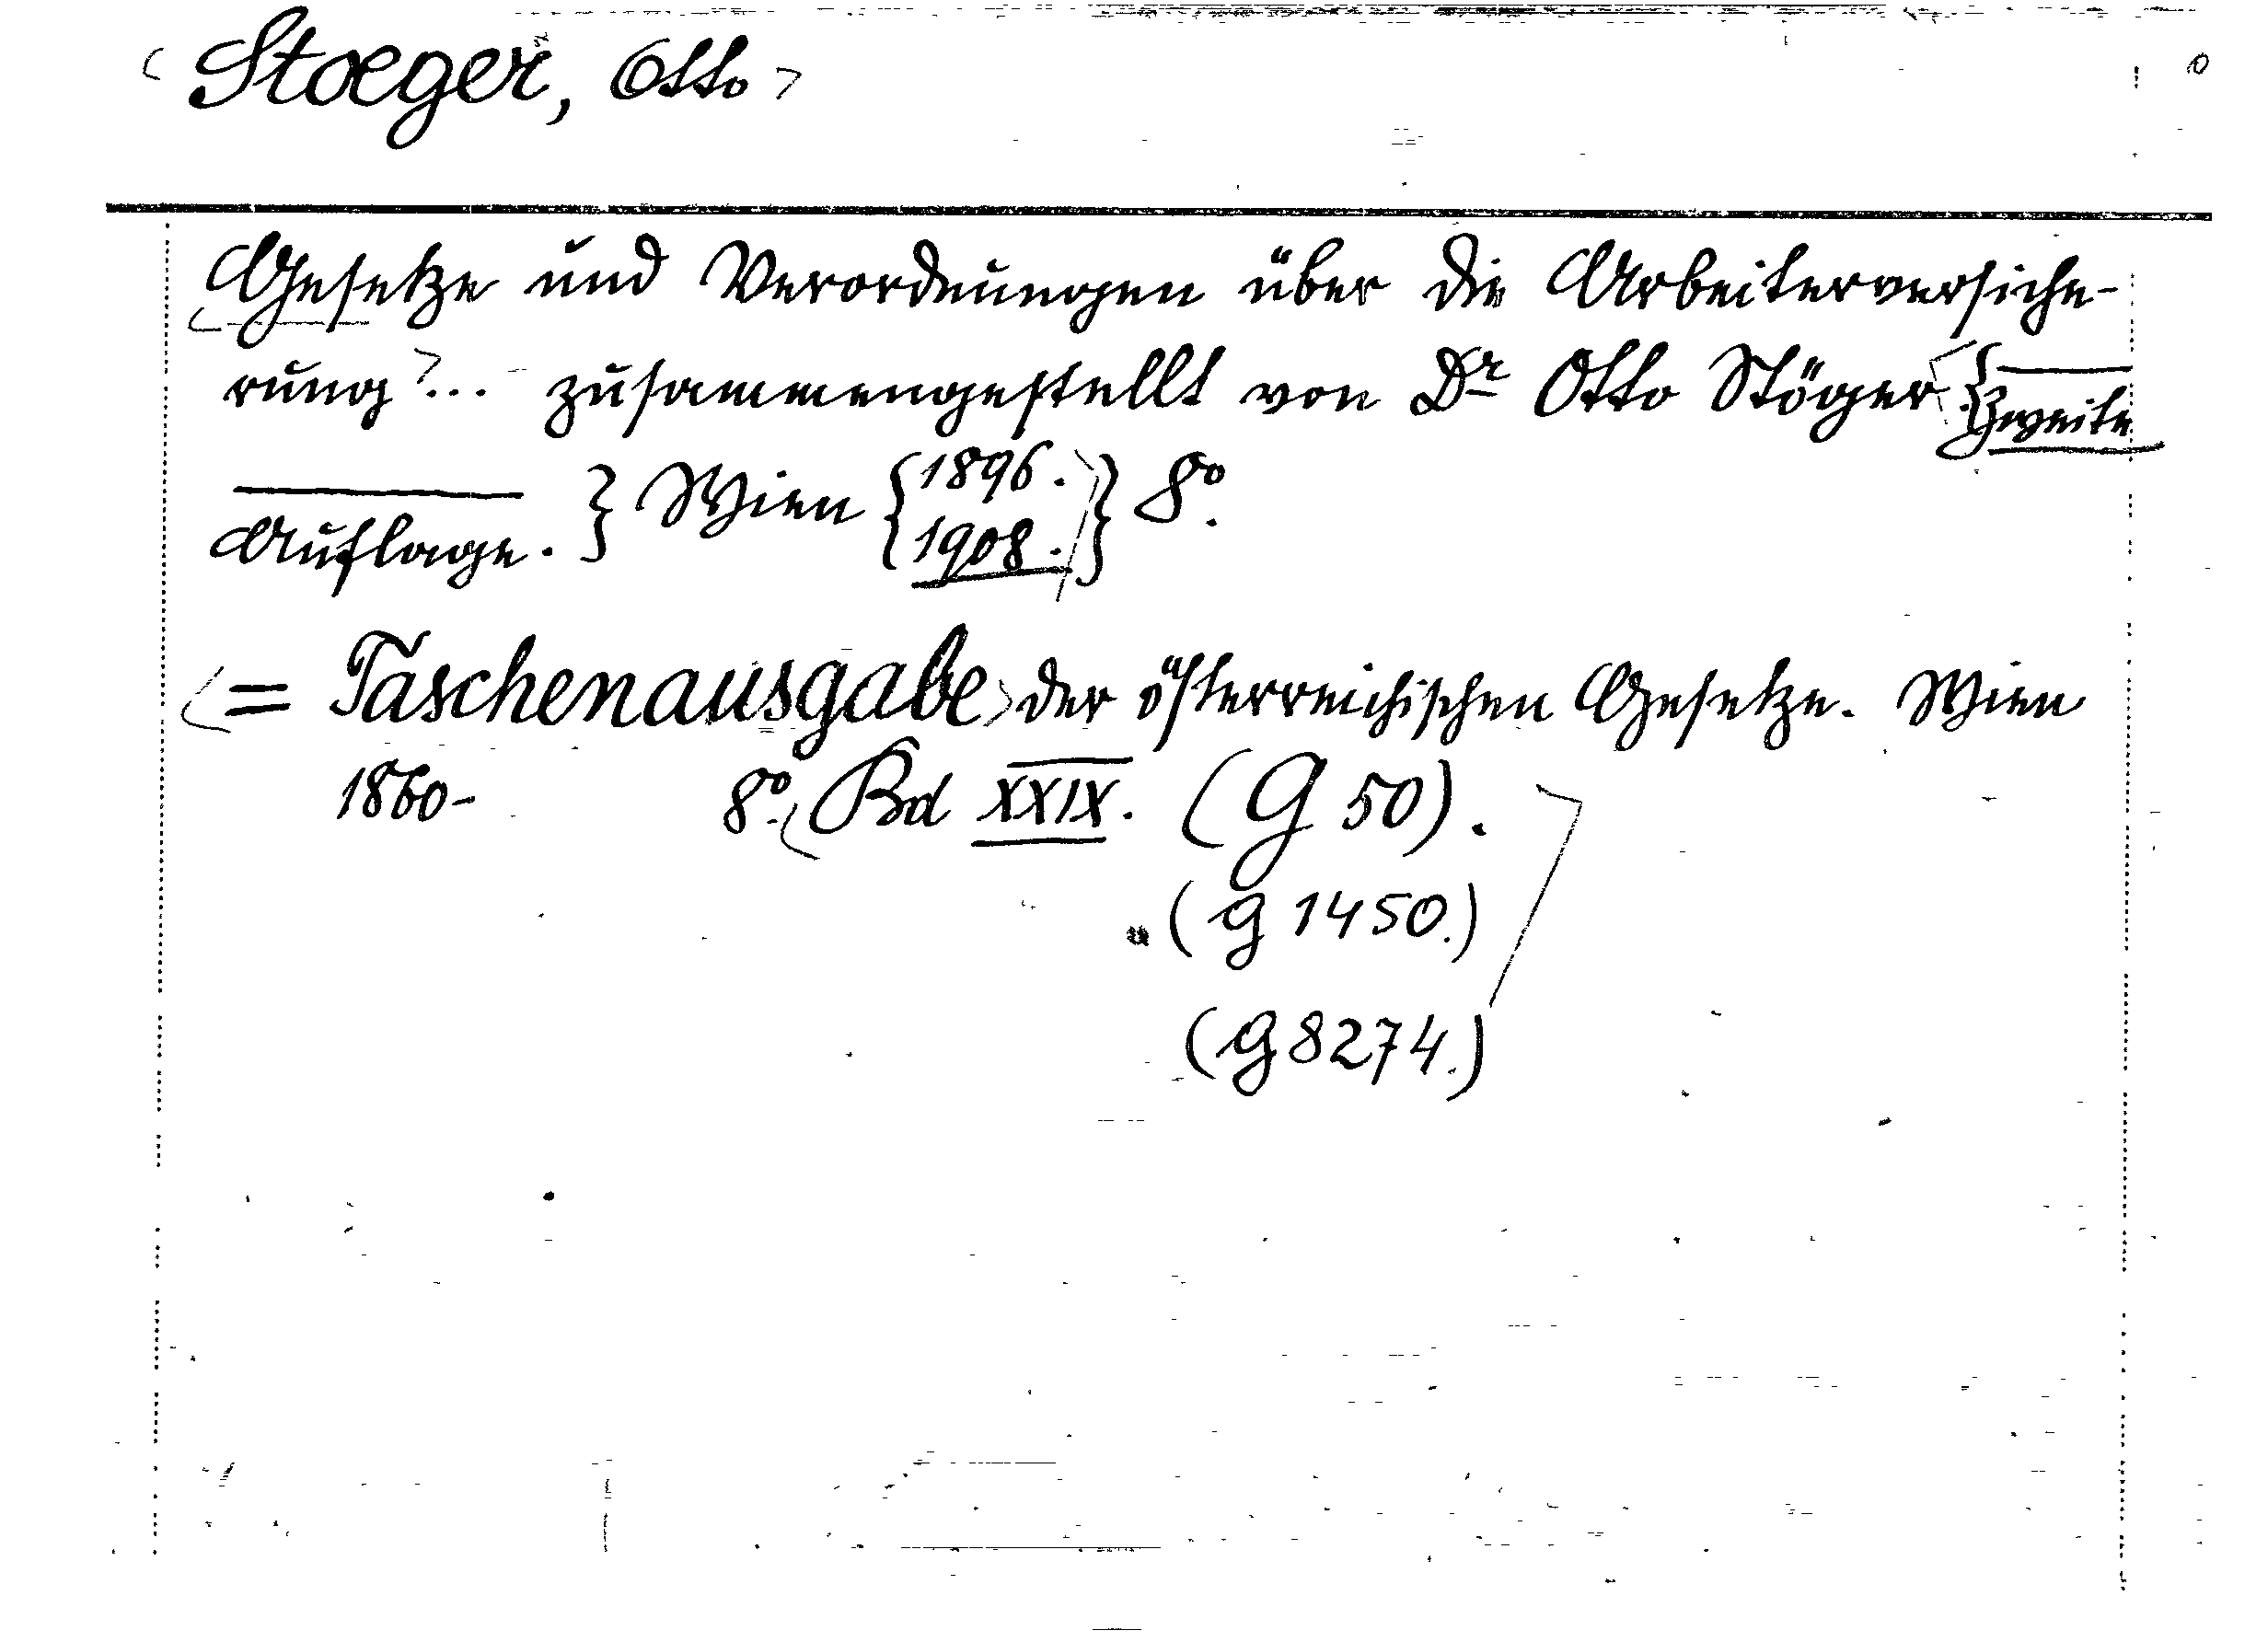 Stoeger, Otto
Gesetze und Verordnungen über die Arbeiterversiche-
rung ... zusammengestellt von Dr Otto Stöger { Zweite
Auflage. } Wien { 1896. 1908. } 8o.
= Taschenausgabe der österreichischen Gesetze. Wien
1860- 8o. Bd XXIX. (G 50).
(G 1450.)
(G 8274.)